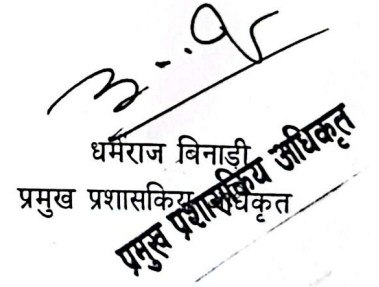 धर्मराज बिनाडी
प्रमुख प्रशासकिय अधिकृत
प्रमुख प्रशासकिय अधिकृत